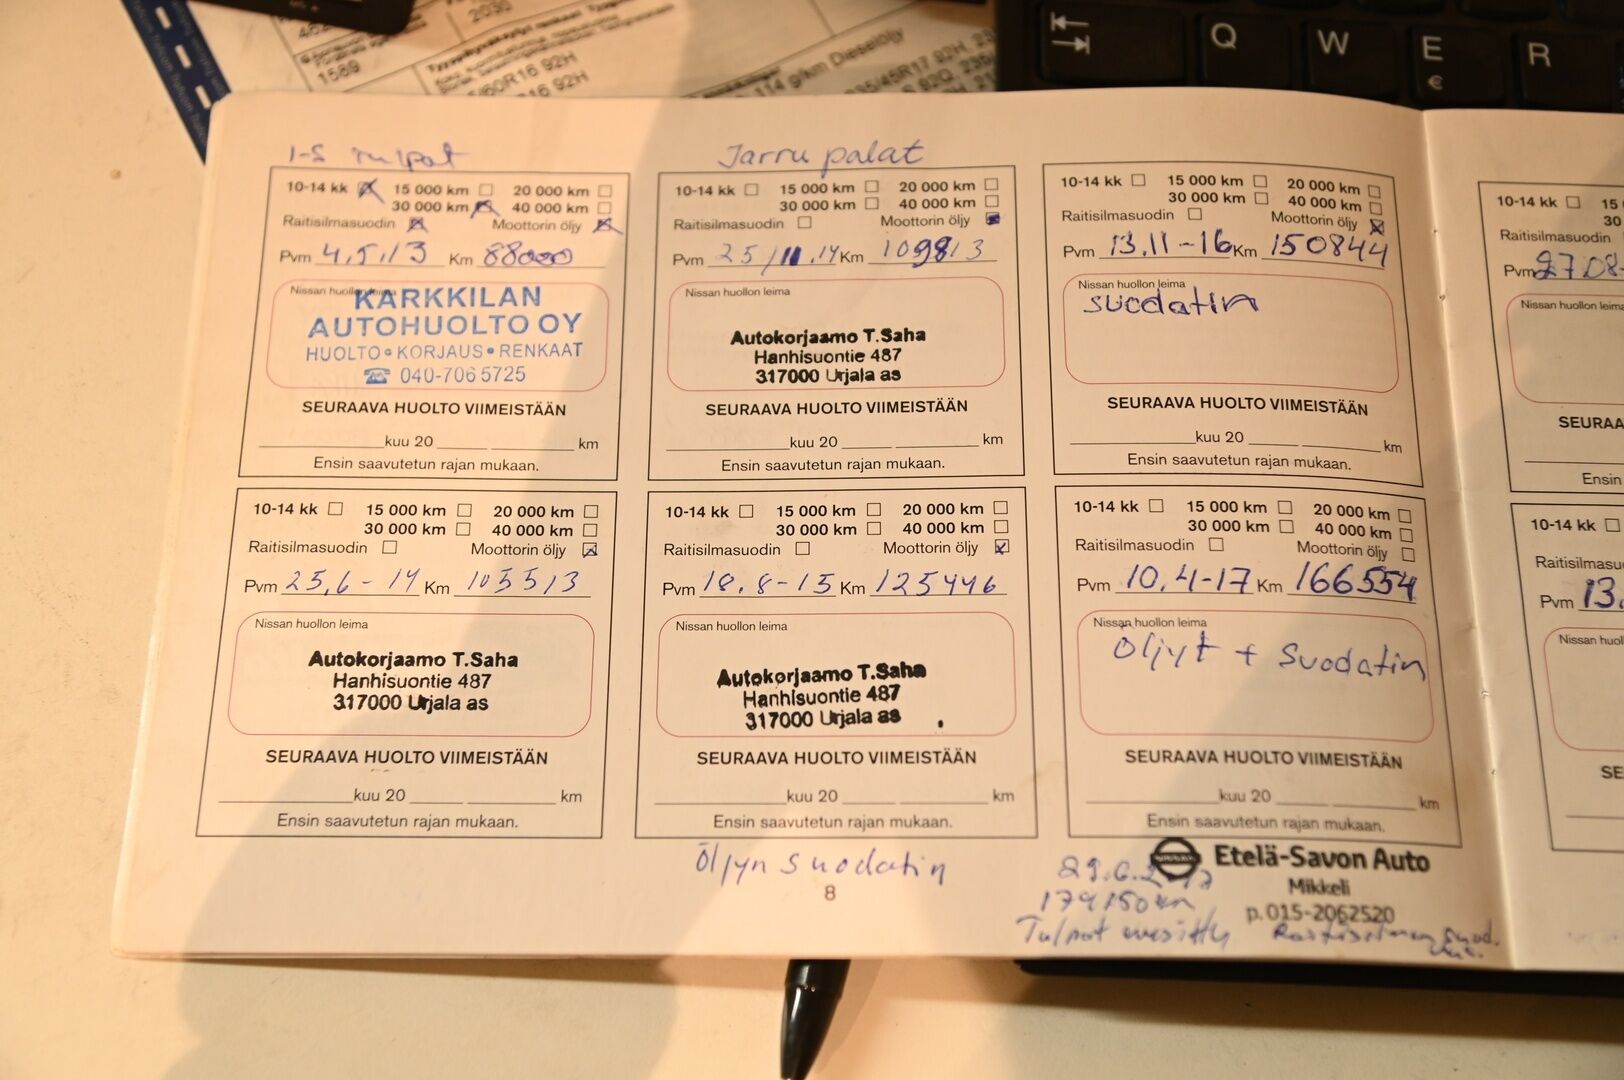 2030
1589
5/60R16 92H
R16 92H
114 g/km Dieselöljy
235/45R17 92H
Q W E R
€
1-S tulpat
10-14 kk 15 000 km 20 000 km
30 000 km 40 000 km
Raitisilmasuodin Moottorin öljy
Pvm 4.5.13 Km 88000
Nissan huollon leima
KARKKILAN
AUTOHUOLTO OY
HUOLTO • KORJAUS • RENKAAT
☎ 040-706 5725
SEURAAVA HUOLTO VIIMEISTÄÄN
kuu 20 km
Ensin saavutetun rajan mukaan.
10-14 kk 15 000 km 20 000 km
30 000 km 40 000 km
Raitisilmasuodin Moottorin öljy
Pvm 25.6-14 Km 105513
Nissan huollon leima
Autokorjaamo T.Saha
Hanhisuontie 487
317000 Urjala as
SEURAAVA HUOLTO VIIMEISTÄÄN
kuu 20 km
Ensin saavutetun rajan mukaan.
Jarru palat
10-14 kk 15 000 km 20 000 km
30 000 km 40 000 km
Raitisilmasuodin Moottorin öljy
Pvm 25/11.14 Km 109813
Nissan huollon leima
Autokorjaamo T.Saha
Hanhisuontie 487
317000 Urjala as
SEURAAVA HUOLTO VIIMEISTÄÄN
kuu 20 km
Ensin saavutetun rajan mukaan.
10-14 kk 15 000 km 20 000 km
30 000 km 40 000 km
Raitisilmasuodin Moottorin öljy
Pvm 18.8-15 Km 125446
Nissan huollon leima
Autokorjaamo T.Saha
Hanhisuontie 487
317000 Urjala as
SEURAAVA HUOLTO VIIMEISTÄÄN
kuu 20 km
Ensin saavutetun rajan mukaan.
Öljyn suodatin
8
10-14 kk 15 000 km 20 000 km
30 000 km 40 000 km
Raitisilmasuodin Moottorin öljy
Pvm 13.11-16 Km 150844
Nissan huollon leima
suodatin
SEURAAVA HUOLTO VIIMEISTÄÄN
kuu 20 km
Ensin saavutetun rajan mukaan.
10-14 kk 15 000 km 20 000 km
30 000 km 40 000 km
Raitisilmasuodin Moottorin öljy
Pvm 10.4-17 Km 166554
Nissan huollon leima
Öljyt + Suodatin
SEURAAVA HUOLTO VIIMEISTÄÄN
kuu 20 km
Ensin saavutetun rajan mukaan.
NISSAN Etelä-Savon Auto
Mikkeli
p. 015-2062520
179150 km
Tulpat Raitisilman suod.
10-14 kk 15
30
Raitisilmasuodin
Pvm 27.08-
Nissan huollon leima
SEURAA
Ensin
10-14 kk
Raitisilmasu
Pvm 13.
Nissan huol
SE